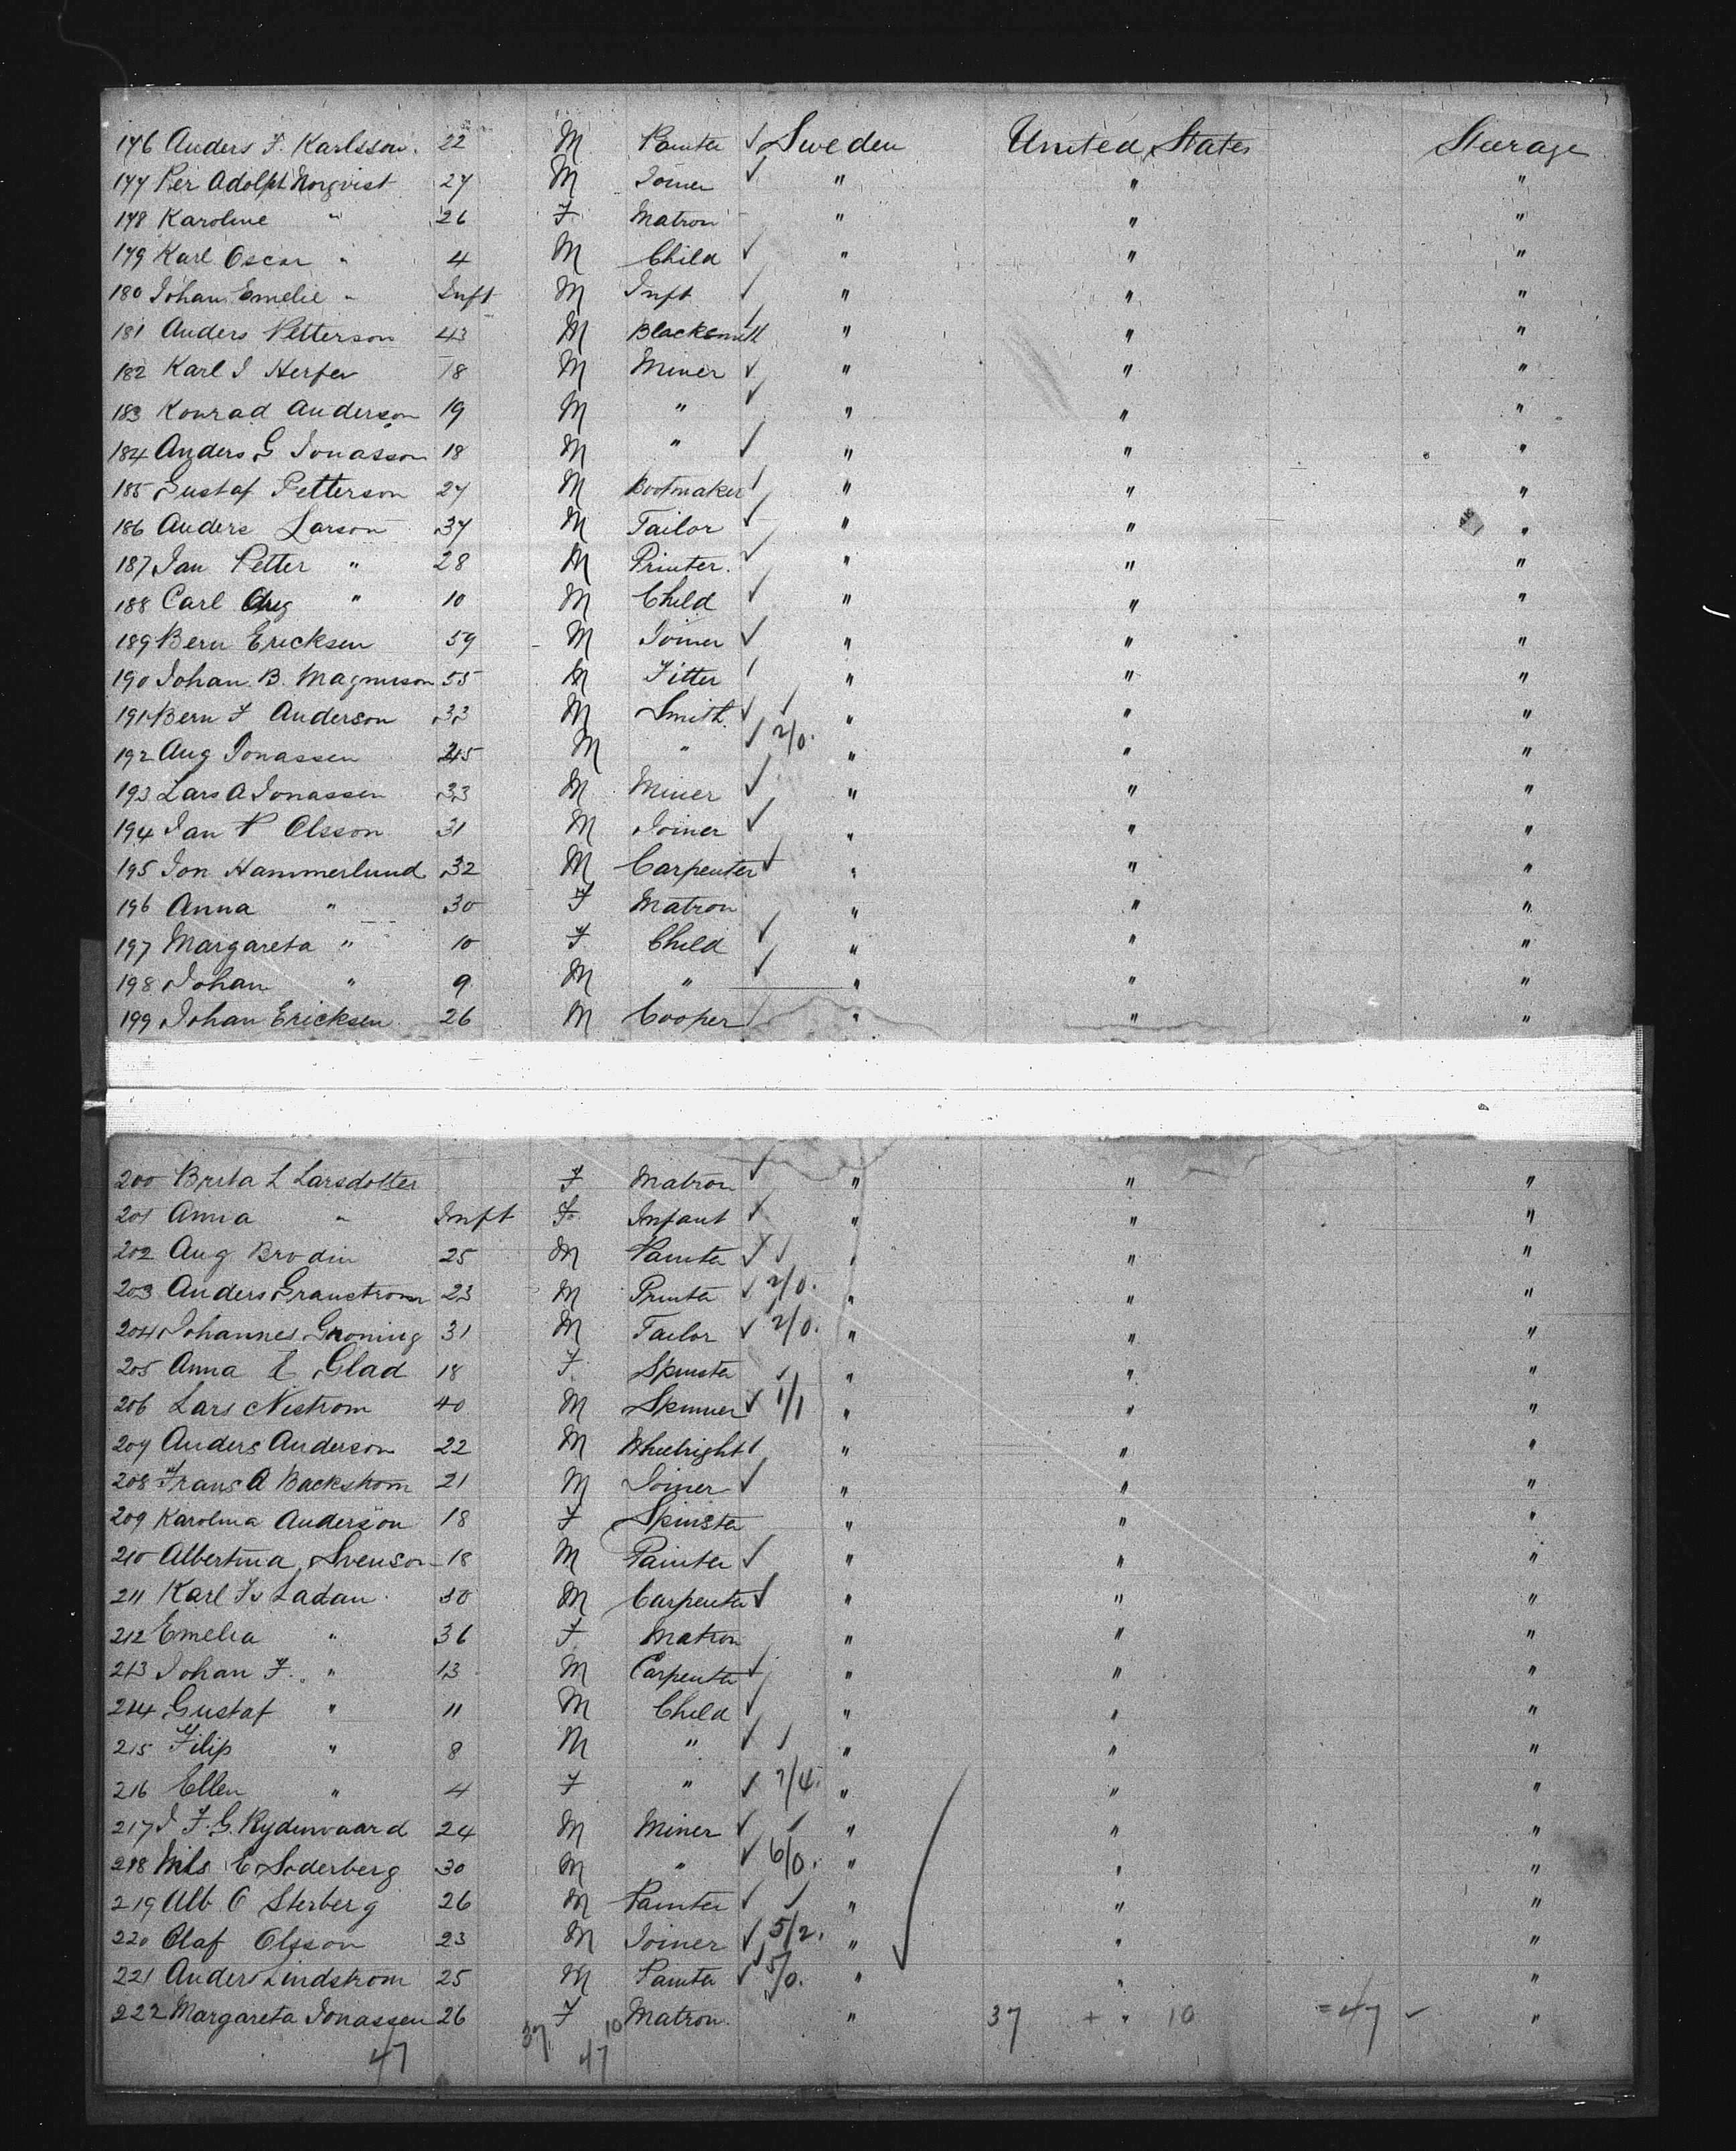 176 Anders F. Karlsson. 22 M Painter ✓ Sweden United States Steerage
177 Per Adolph Norqvist 27 M Joiner ✓ " " "
178 Karoline " 26 F Matron " " "
179 Karl Oscar " 4 M Child ✓ " " "
180 Johan Emelie " Inft M Inft ✓ " " "
181 Anders Petterson 43 M Blacksmith ✓ " " "
182 Karl J 18 M Miner ✓ " " "
183 Konrad Anderson 19 M " ✓ " " "
184 Anders G Jonasson 18 M " ✓ " " "
185 Gustaf Petterson 27 M Bootmaker ✓ " " "
186 Anders Larson 37 M Tailor ✓ " " "
187 Jan Petter " 28 M Printer. ✓ " " "
188 Carl Aug " 10 M Child ✓ " " "
189 Bern Ericksen 59 M Joiner ✓ " " "
190 Johan B. Magnuson 55 M Fitter ✓ " " "
191 Bern F Anderson 33 M Smith. ✓ ✓ " " "
192 Aug Jonassen 45 M " ✓ 2/0. " " "
193 Lars A Jonassen 33 M Miner ✓ " " "
194 Jan P Olsson 31 M Joiner ✓ " " "
195 Jon Hammerlund 32 M Carpenter ✓ " " "
196 Anna " 30 F Matron " " "
197 Margareta " 10 F Child ✓ " " "
198 Johan " 9 M " ✓ " " "
199 Johan Ericksen 26 M Cooper ✓ " " "
200 Brita L Larsdotter F Matron ✓ " " "
201 Anna " Inft F Infant ✓ " " "
202 Aug Brodin 25 M Painter ✓ ✓ " " "
203 Anders Granstrom 23 M Printer ✓ 2/0. " " "
204 Johannes Groning 31 M Tailor ✓ 2/0. " " "
205 Anna E Glad 18 F Spinster ✓ " " "
206 Lars Nistrom 40 M Spinner ✓ 1/1 " " "
207 Anders Anderson 22 M Wheelright ✓ " " "
208 Frans A Backstrom 21 M Joiner ✓ " " "
209 Karolina Anderson 18 F Spinster " " "
210 Albertina Svenson 18 M Painter ✓ " " "
211 Karl Ladan 30 M Carpenter ✓ " " "
212 Emelia " 36 F Matron " " "
213 Johan F. " 13 M Carpenter ✓ " " "
214 Gustaf " 11 M Child ✓ " " "
215 Filip " 8 M " ✓ ✓ " " "
216 Ellen " 4 F " ✓ 7/4. " " "
217 J F. G. Rydenvaard 24 M Miner ✓ ✓ " " "
218 Nils E Soderberg 30 M " ✓ 6/0. " " "
219 Alb O Sterberg 26 M Painter ✓ ✓ " " "
220 Olaf Olsson 23 M Joiner ✓ 5/2. " " "
221 Anders Lindstrom 25 M Painter ✓ 5/0. " " "
222 Margareta Jonassen 26 F Matron. " 37 + " 10 = 47 ✓ "
37 10
47 47